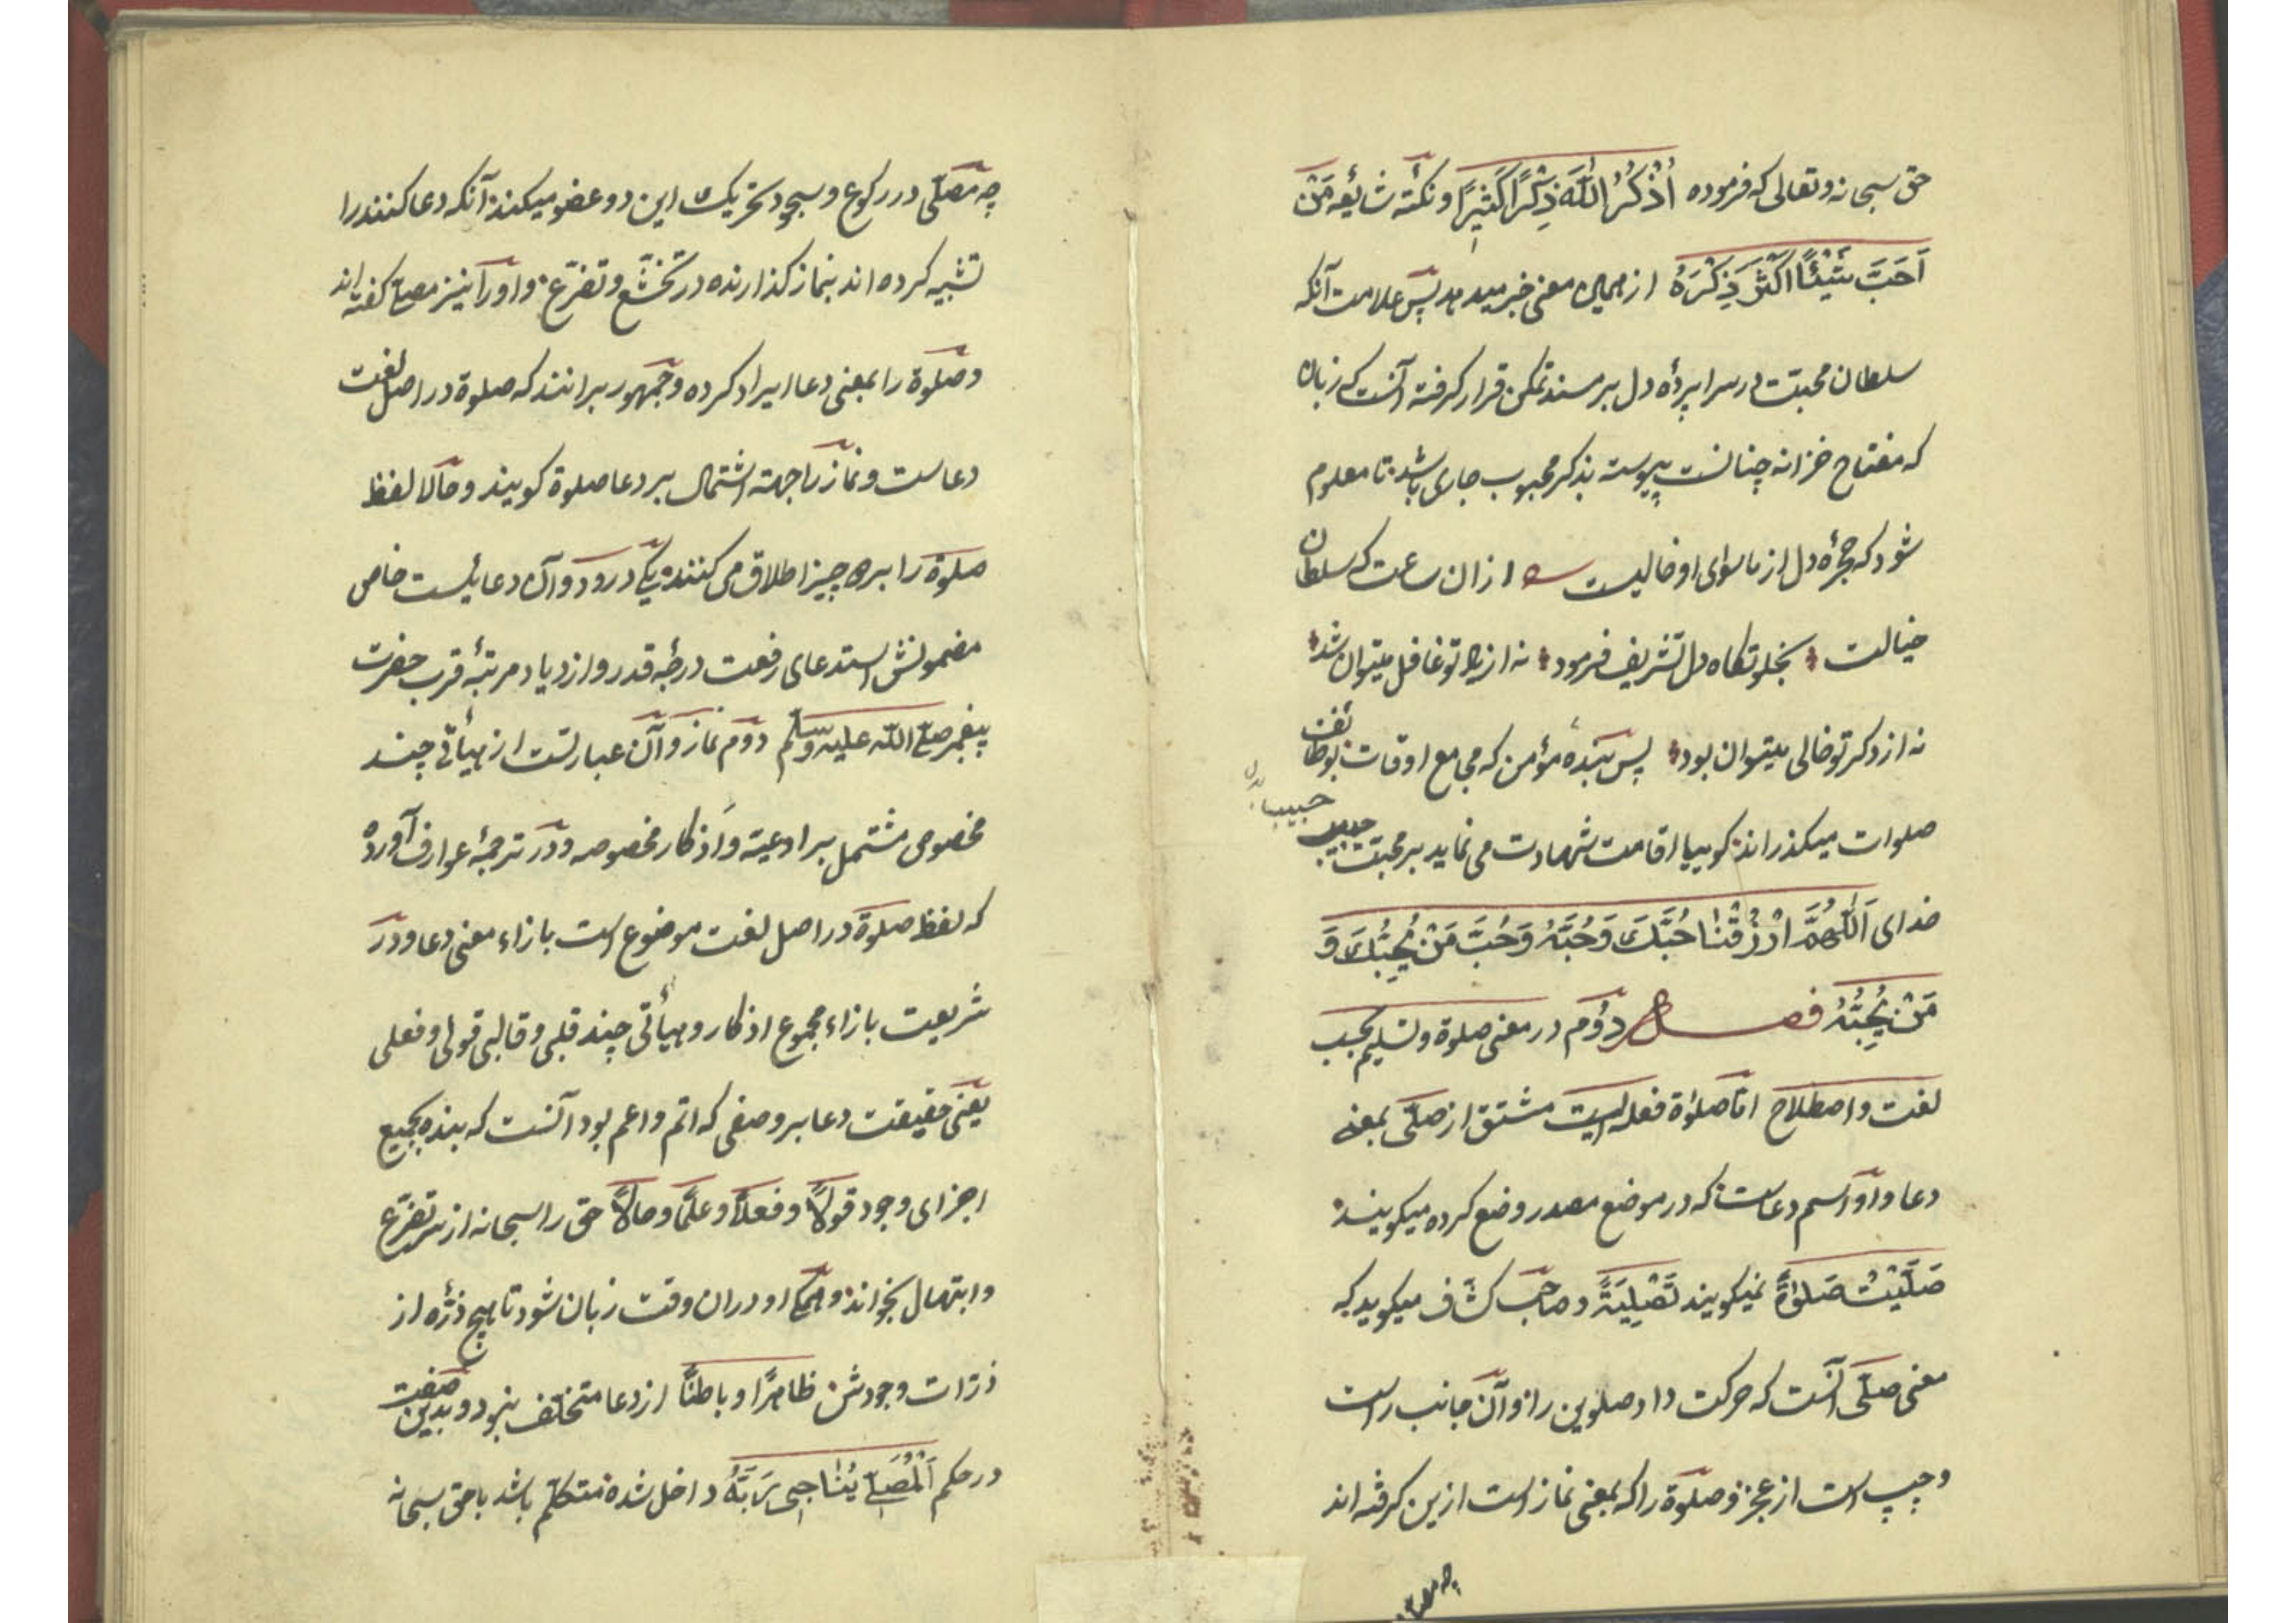 حق سبحانه وتعالی که فرموده اُذْکُرُ اللّٰهَ ذِکْرًا کَثِیْرًا و نکتهٔ شایعهٔ مَنْ
اَحَبَّ شَیْئًا اَکْثَرَ ذِکْرَهُ از همین معنی خبر میدهد پس علامت آنکه
سلطان محبت در سراپردهٔ دل بر مسند تمکن قرار گرفته آنست که زبان
که مفتاح خزانه چنانست پیوسته بذکر محبوب جاری باشد تا معلوم
شود که حجرهٔ دل از ماسوای او خالیست ازان ساعت که سلطان
خیالت بخلوتگاه دل تشریف فرمود نه از یاد تو غافل میتوان شد
نه از ذکر تو خالی میتوان بود پس بندهٔ مؤمن که مجامع اوقات بوظائف
صلوات میگذراند گوییا اقامت شهادت می نماید بر محبت حبیب
حبیب
خدای اَللّٰهُمَّ ارْزُقْنَا حُبَّکَ وَحُبَّهُ وَحُبَّ مَنْ یُحِبُّکَ وَ
مَنْ یُحِبُّهُ فصل دوم در معنی صلوة و تسلیم بحسب
لغت و اصطلاح اما صلوٰة فعله ایست مشتق از صلّی بمعنی
دعا و او اسم دعاست که در موضع مصدر وضع کرده میگویند
صَلَّیْتُ صَلوٰةً نمیگویند تَصْلِیَةً و صاحب کشاف میگوید که
معنی صلّی آنست که حرکت داد صلوین را و آن جانب راست
و چپ است از عجز و صلوة را که بمعنی نماز است ازین گرفته اند
چه مصلی
چه مصلّی در رکوع و سجود تحریک این دو عضو میکند آنکه دعا کنند را
تشبیه کرده اند بنماز گذارنده در تخشّع و تضرّع و او را نیز مصلّی گفته اند
و صلوة را بمعنی دعا ایراد کرده و جمهور برانند که صلوة در اصل لغت
دعاست و نماز را جهت اشتمال بر دعا صلوة گویند و حالا لفظ
صلوة را بر سه چیز اطلاق می کنند یکی درود و آن دعائیست خاص
مضمونش استدعای رفعت درجهٔ قدر و ازدیاد مرتبهٔ قرب حضرت
پیغمبر صلی اللّه علیه وسلم دوم نماز و آن عبارتست از هیأتی چند
مخصوص مشتمل بر ادعیه و اذکار مخصوصه و در ترجمهٔ عوارف آورده
که لفظ صلوة در اصل لغت موضوع است بازاء معنی دعا و در
شریعت بازاء مجموع اذکار و هیأتی چند قلبی و قالبی قولی و فعلی
یعنی حقیقت دعا بر وصفی که اتم و اعم بود آنست که بنده بجمیع
اجزای وجود قولاً و فعلاً و علمًا و حالاً حق را سبحانه از سر تضرّع
و ابتهال بخواند و همگی او دران وقت زبان شود تا هیچ ذرّه از
ذرّات وجودش ظاهرًا و باطنًا از دعا متخلف نبود و بدین صفت
در حکم اَلْمُصَلِّی یُنَاجِی رَبَّهُ داخل شده متکلّم باشد با حق سبحانه